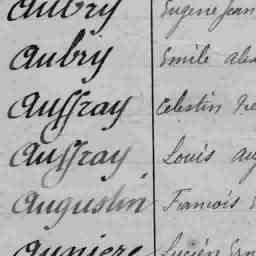 Aubry Eugene Jean
Aubry Emile
Auffray Celestin
Auffray Louis
Augustin Francois
Auniere Lucien